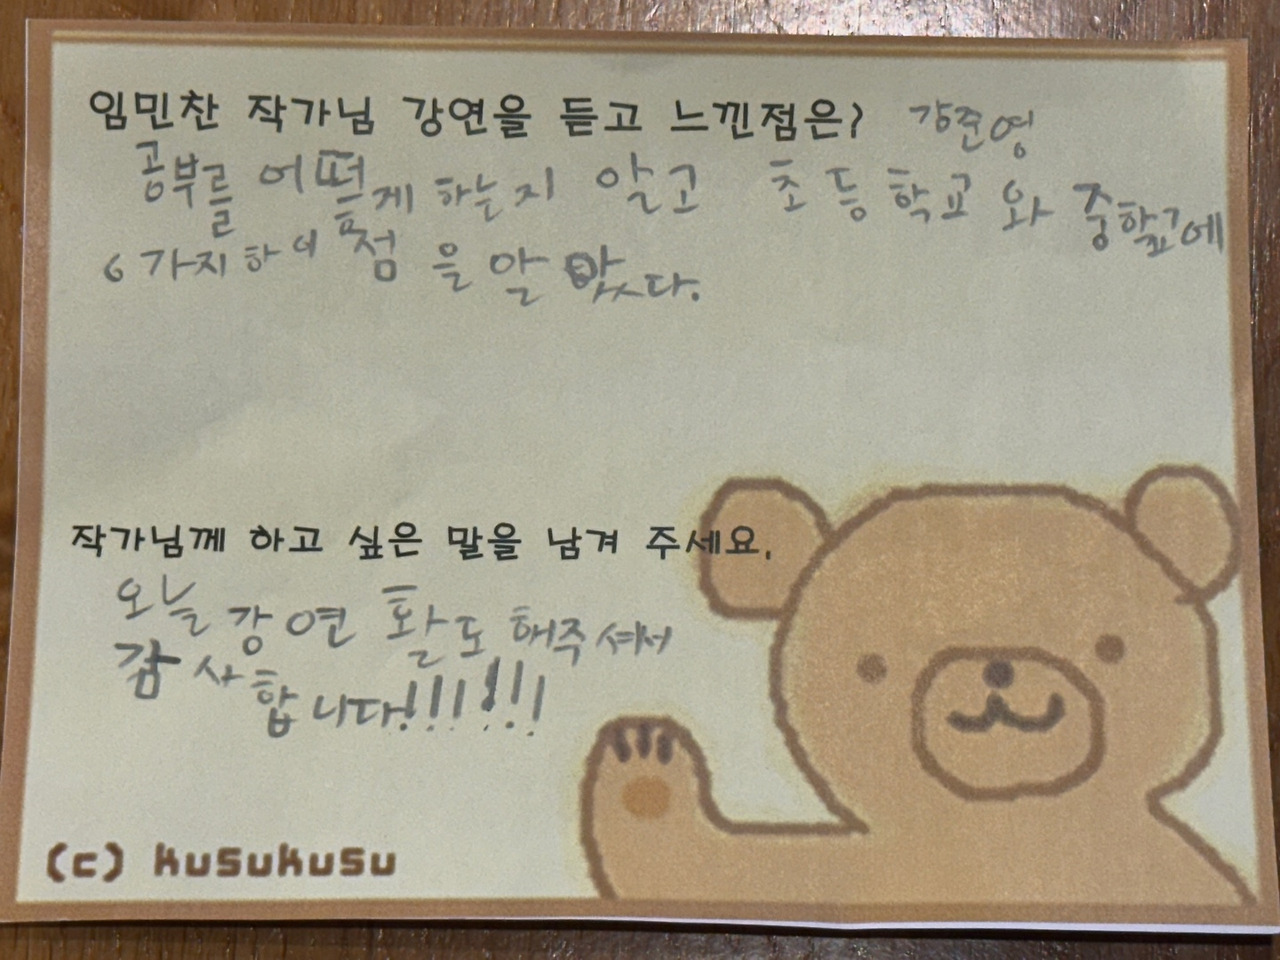 임민찬 작가님 강연을 듣고 느낀점은? 강준영
공부를 어떻게 하는지 알고 초등학교 와 중학교에
6가지 하 점 을 알 았다.
작가님께 하고 싶은 말을 남겨 주세요.
오늘 강연 활도 해주셔서
감사합니다!!!!!!!
(c) kusukusu